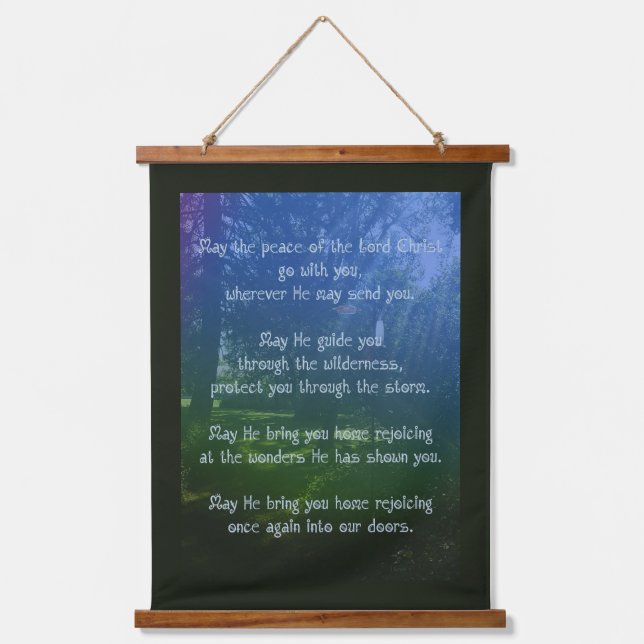 May the peace of the Lord Christ
go with you,
wherever He may send you.
May He guide you
through the wilderness,
protect you through the storm.
May He bring you home rejoicing
at the wonders He has shown you.
May He bring you home rejoicing
once again into our doors.